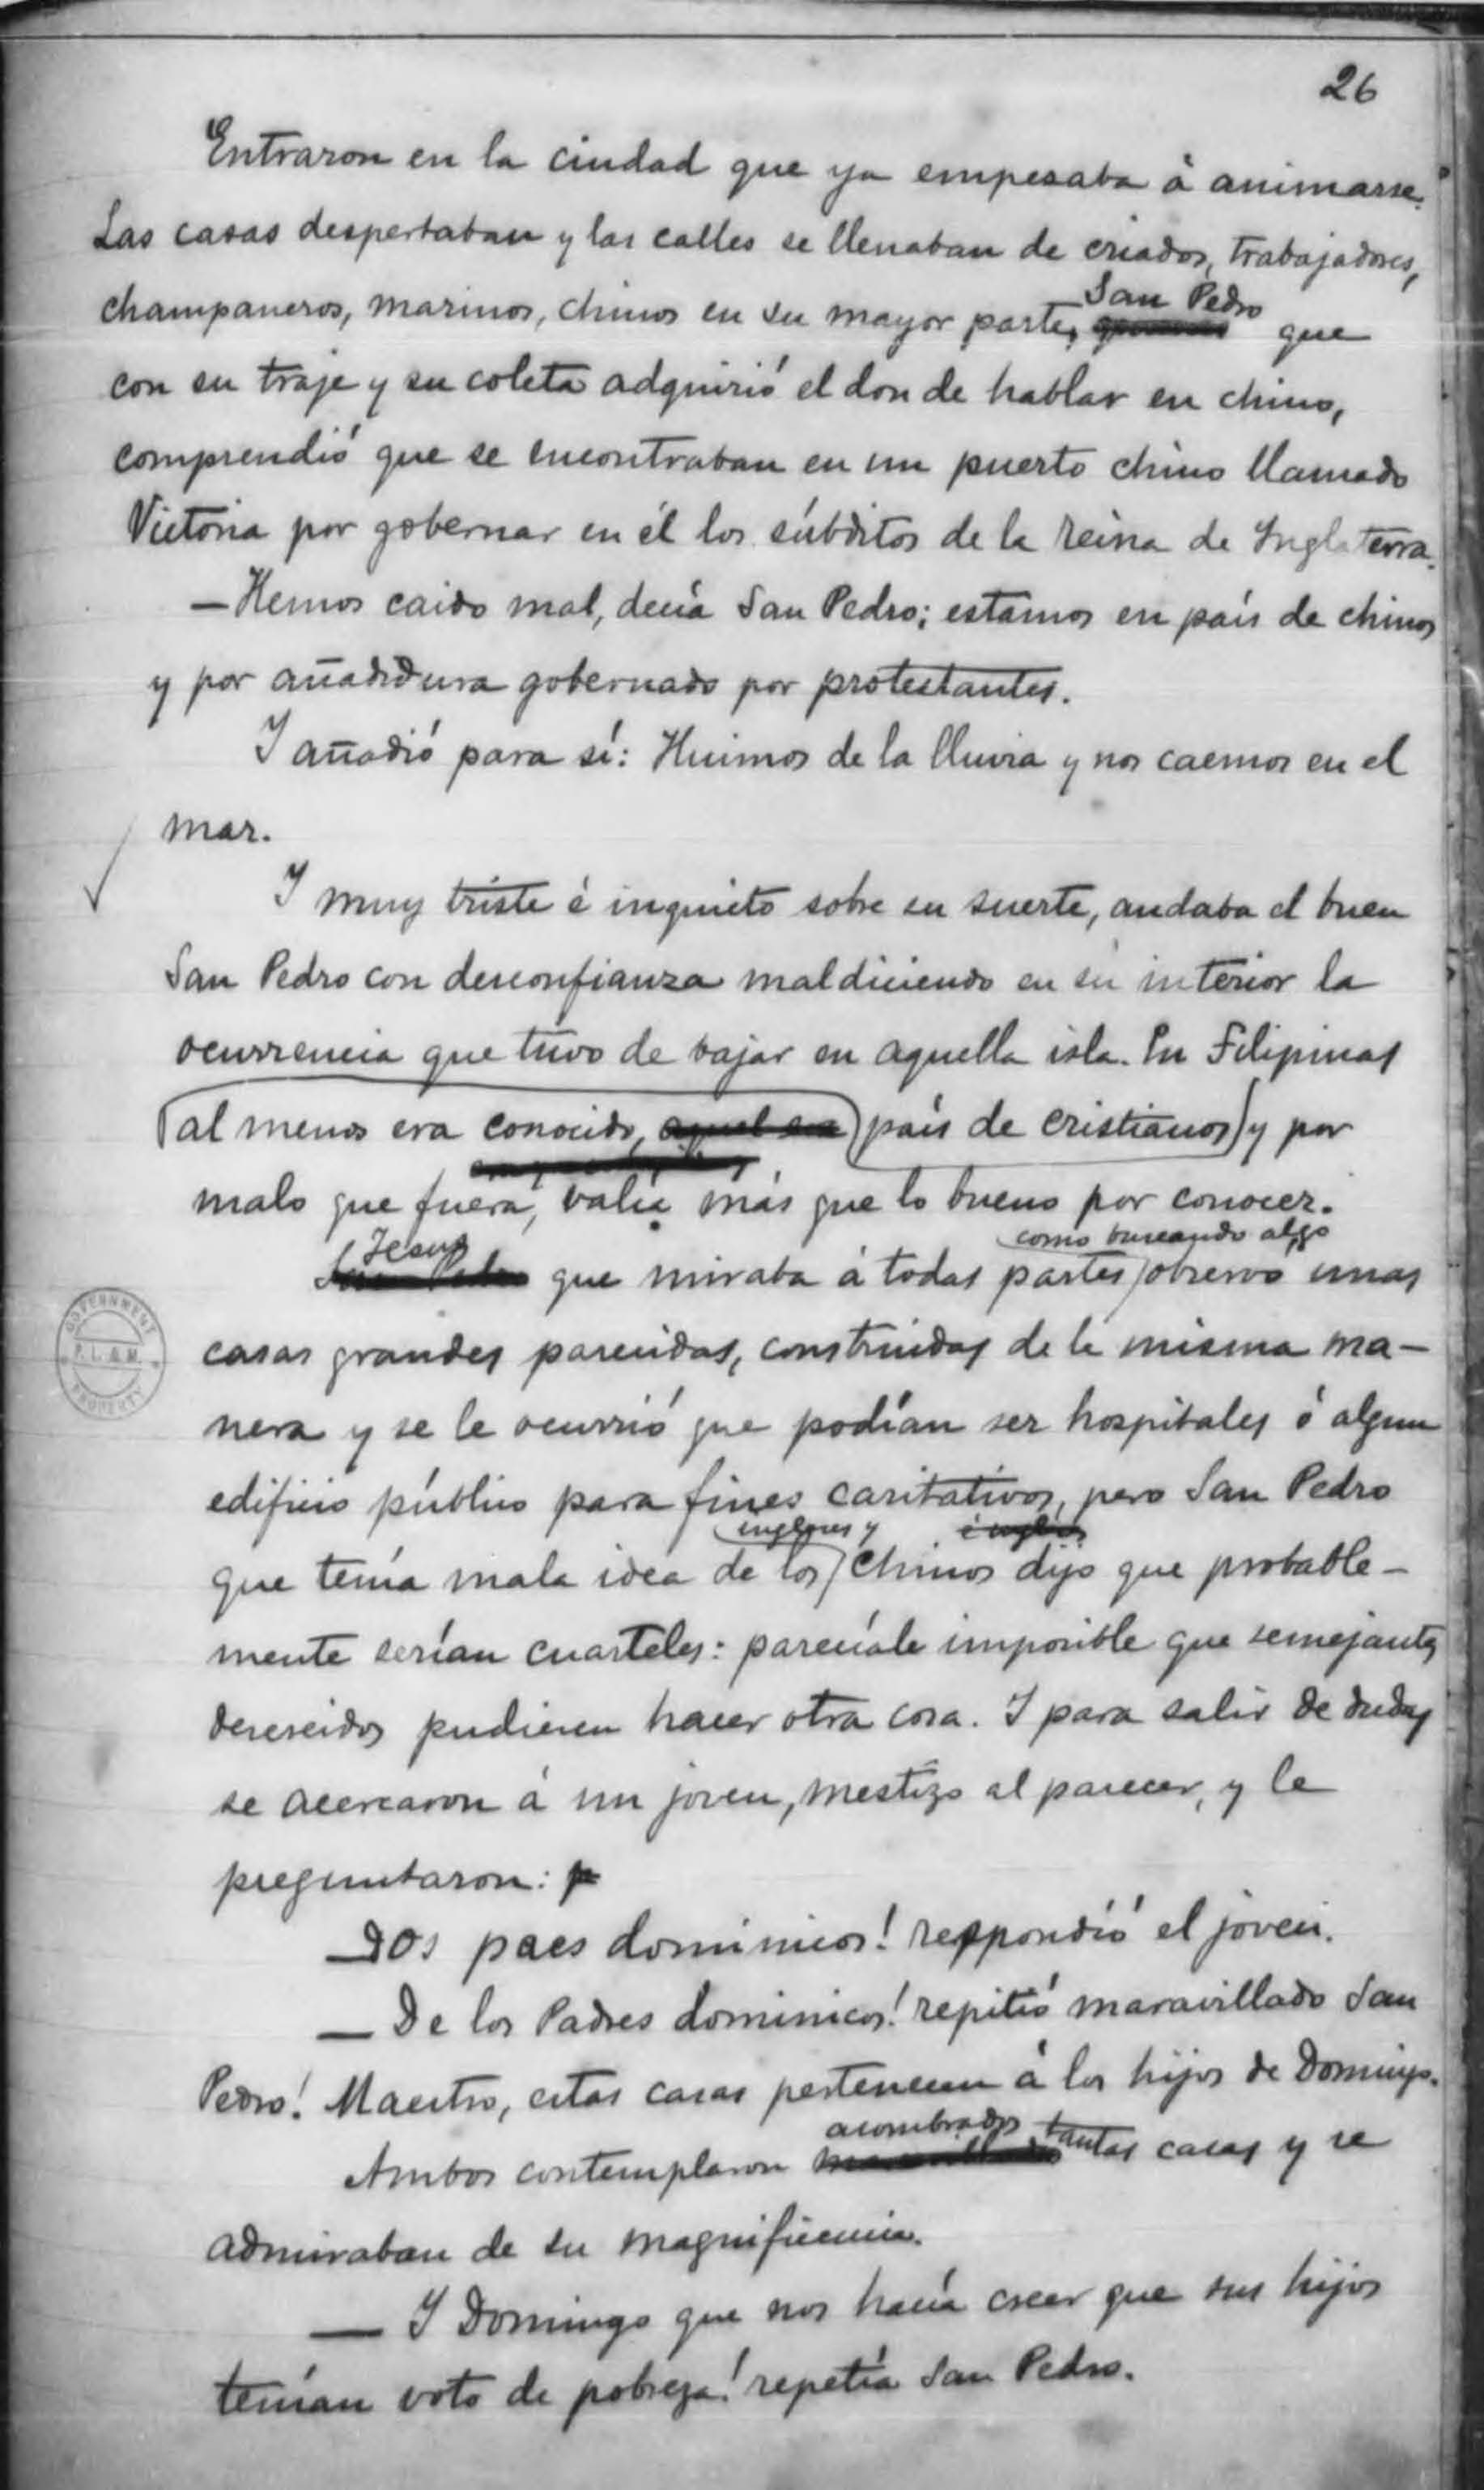 26
Entraron en la ciudad que ya empesaba á animarse.
Las casas despertaban y las calles se llenaban de criados, trabajadores,
San Pedro
champaneros, marinos, chinos en su mayor parte, que
con su traje y su coleta adquirió el don de hablar en chino,
comprendió que se encontraban en un puerto chino llamado
Victoria por gobernar en él los súbditos de la reina de Inglaterra.
— Hemos caido mal, decía San Pedro; estamos en país de chinos
y por añadidura gobernado por protestantes.
I añadió para sí: Huimos de la lluvia y nos caemos en el
mar.
I muy triste é inquieto sobre su suerte, andaba el buen
San Pedro con desconfianza maldiciendo en su interior la
ocurrencia que tuvo de bajar en aquella isla. En Filipinas
al menos era conocido, aquel era país de cristianos y por
malo que fuera, valía más que lo bueno por conocer.
Jesus como buscando algo
San Pedro que miraba á todas partes observó unas
casas grandes parecidas, construidas de la misma ma-
nera y se le ocurrió que podían ser hospitales ó algun
edificio público para fines caritativos, pero San Pedro
ingleses y é ingleses
que tenía mala idea de los Chinos dijo que probable-
mente serían cuarteles: parecíale imposible que semejantes
descreidos pudiesen hacer otra cosa. I para salir de dudas
se acercaron á un joven, mestizo al parecer, y le
preguntaron: p
— Dos paes dominicos! respondió el joven.
— De los Padres dominicos! repitió maravillado San
Pedro! Maestro, estas casas pertenecen á los hijos de Domingo.
asombrados
Ambos contemplaron tantas casas y se
admiraban de su magnificencia.
— I Domingo que nos hacía creer que sus hijos
tenían voto de pobreza! repetía San Pedro.
GOVERNMENT
P. L. & M.
PROPERTY